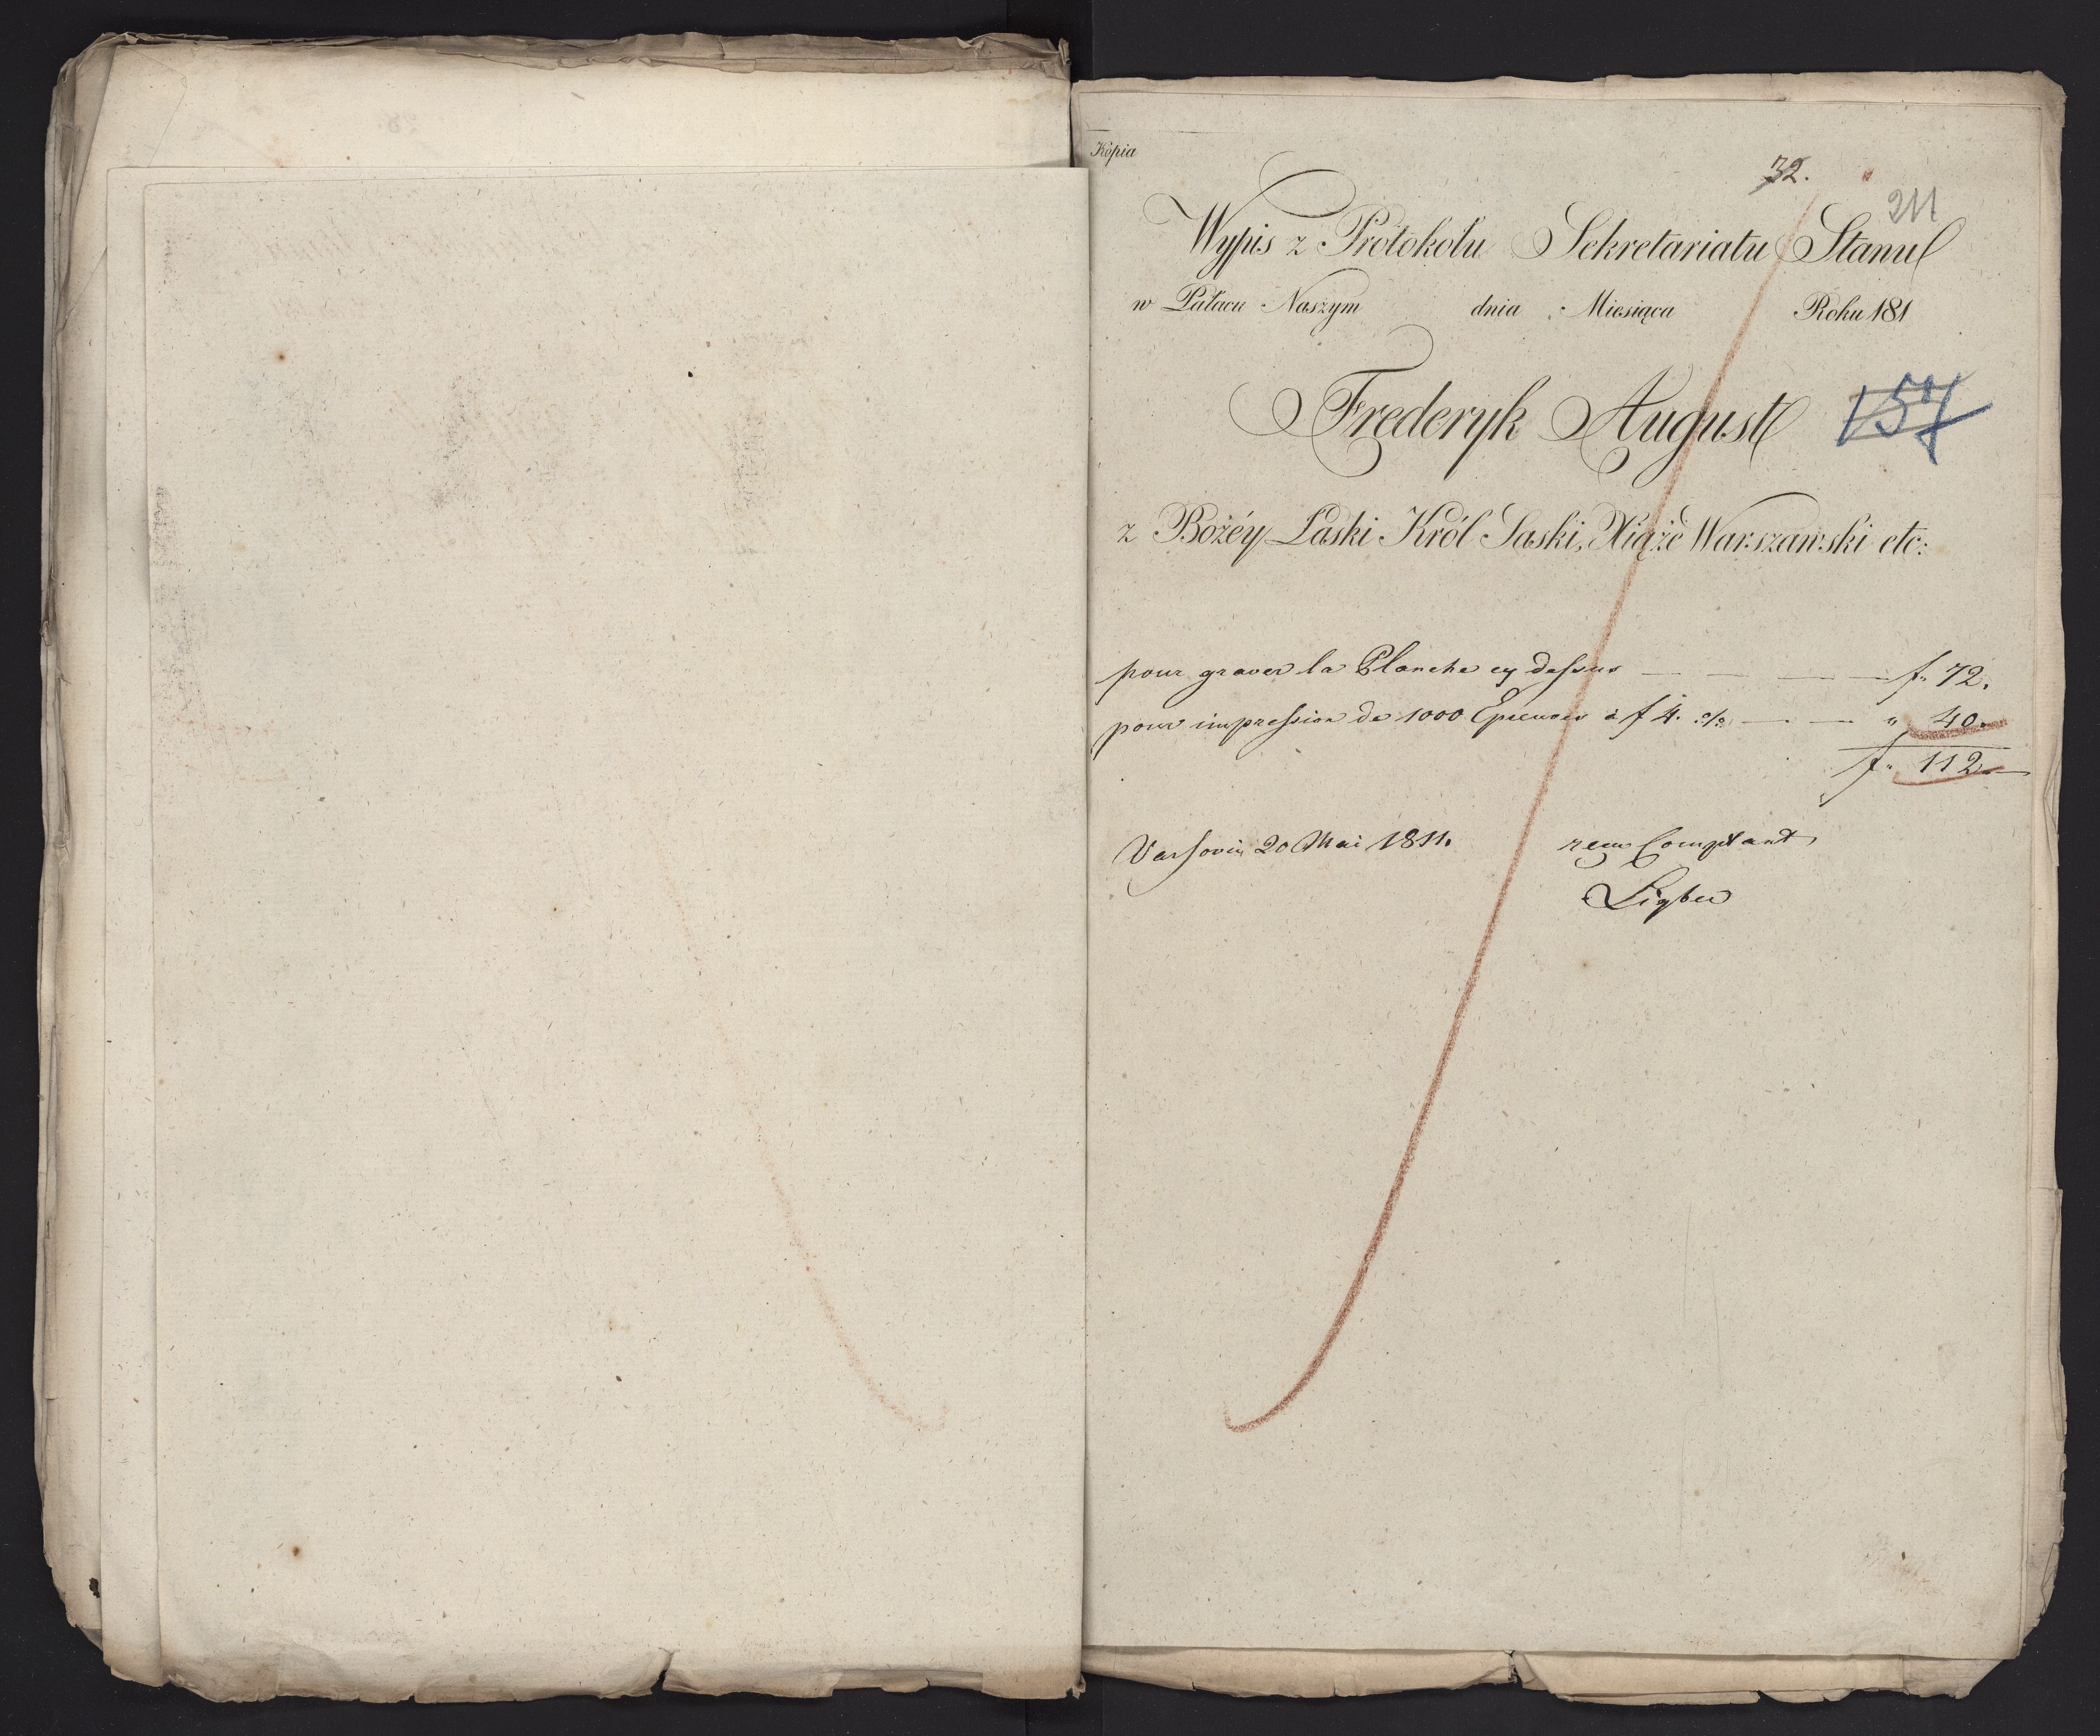 Kopia
32.
211
Wypis z Protokołu Sekretariatu Stanu
w Pałacu Naszym dnia Miesiąca Roku 181
Frederyk August
157
z Bożéy Łaski Król Saski, Xiąże Warszawski etc:
pour graver la Planche cy dessus — — — — f. 72.
pour impression de 1000 Epreuves à f 4. % — — " 40.
f. 112.—
Varsovie 20 Mai 1811. reçu Comptant
Ligber